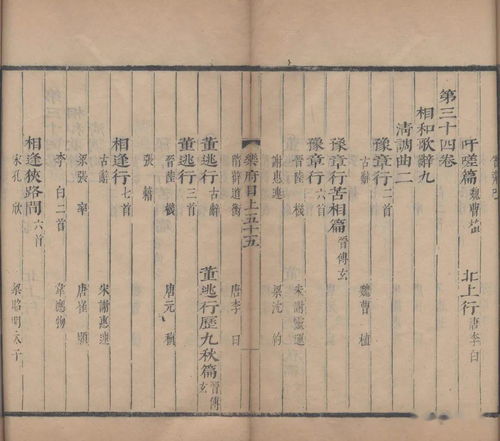 吁嗟篇 魏曹植 北上行 唐李白
第三十四卷
相和歌辭九
清調曲二
豫章行二首
古辭 魏曹植
豫章行苦相篇 晉傅玄
豫章行六首
晉陸機 宋謝靈運
謝惠連 梁沈約
隋薛道衡 唐李白
樂府目上 五十五
董逃行 古辭 董逃行歷九秋篇 晉傅玄
董逃行三首
晉陸機 唐元稹
張籍
相逢行七首
古辭 宋謝惠連
梁張率 唐崔顥
李白二首 韋應物
相逢狹路間六首
宋孔欣 梁昭明太子